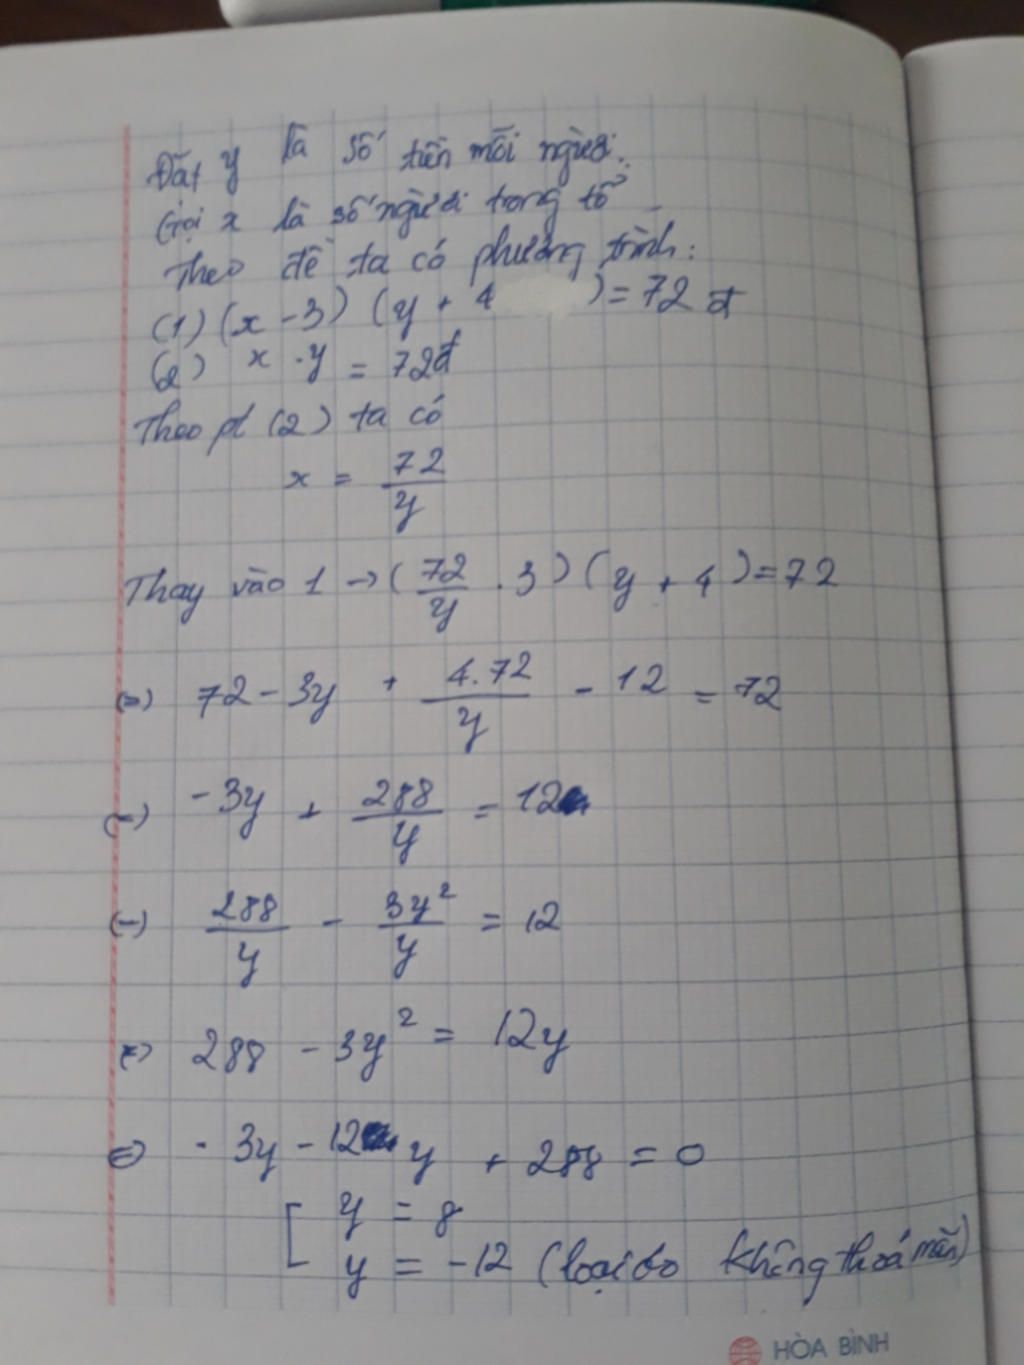 Đặt y là số tiền mỗi người.
Gọi x là số người trong tổ
Theo đề ta có phương trình:
(1) (x - 3) (y + 4 ) = 72 đ
(2) x . y = 72đ
Theo pt (2) ta có
x = 72/y
Thay vào 1 → (72/y . 3) (y + 4) = 72
(=) 72 - 3y + 4.72/y - 12 = 72
(=) -3y + 288/y = 12
(=) 288/y - 3y²/y = 12
(=) 288 - 3y² = 12y
(=) - 3y - 12 y + 288 = 0
[ y = 8
y = -12 (loại bo không thoả mãn)
HÒA BÌNH